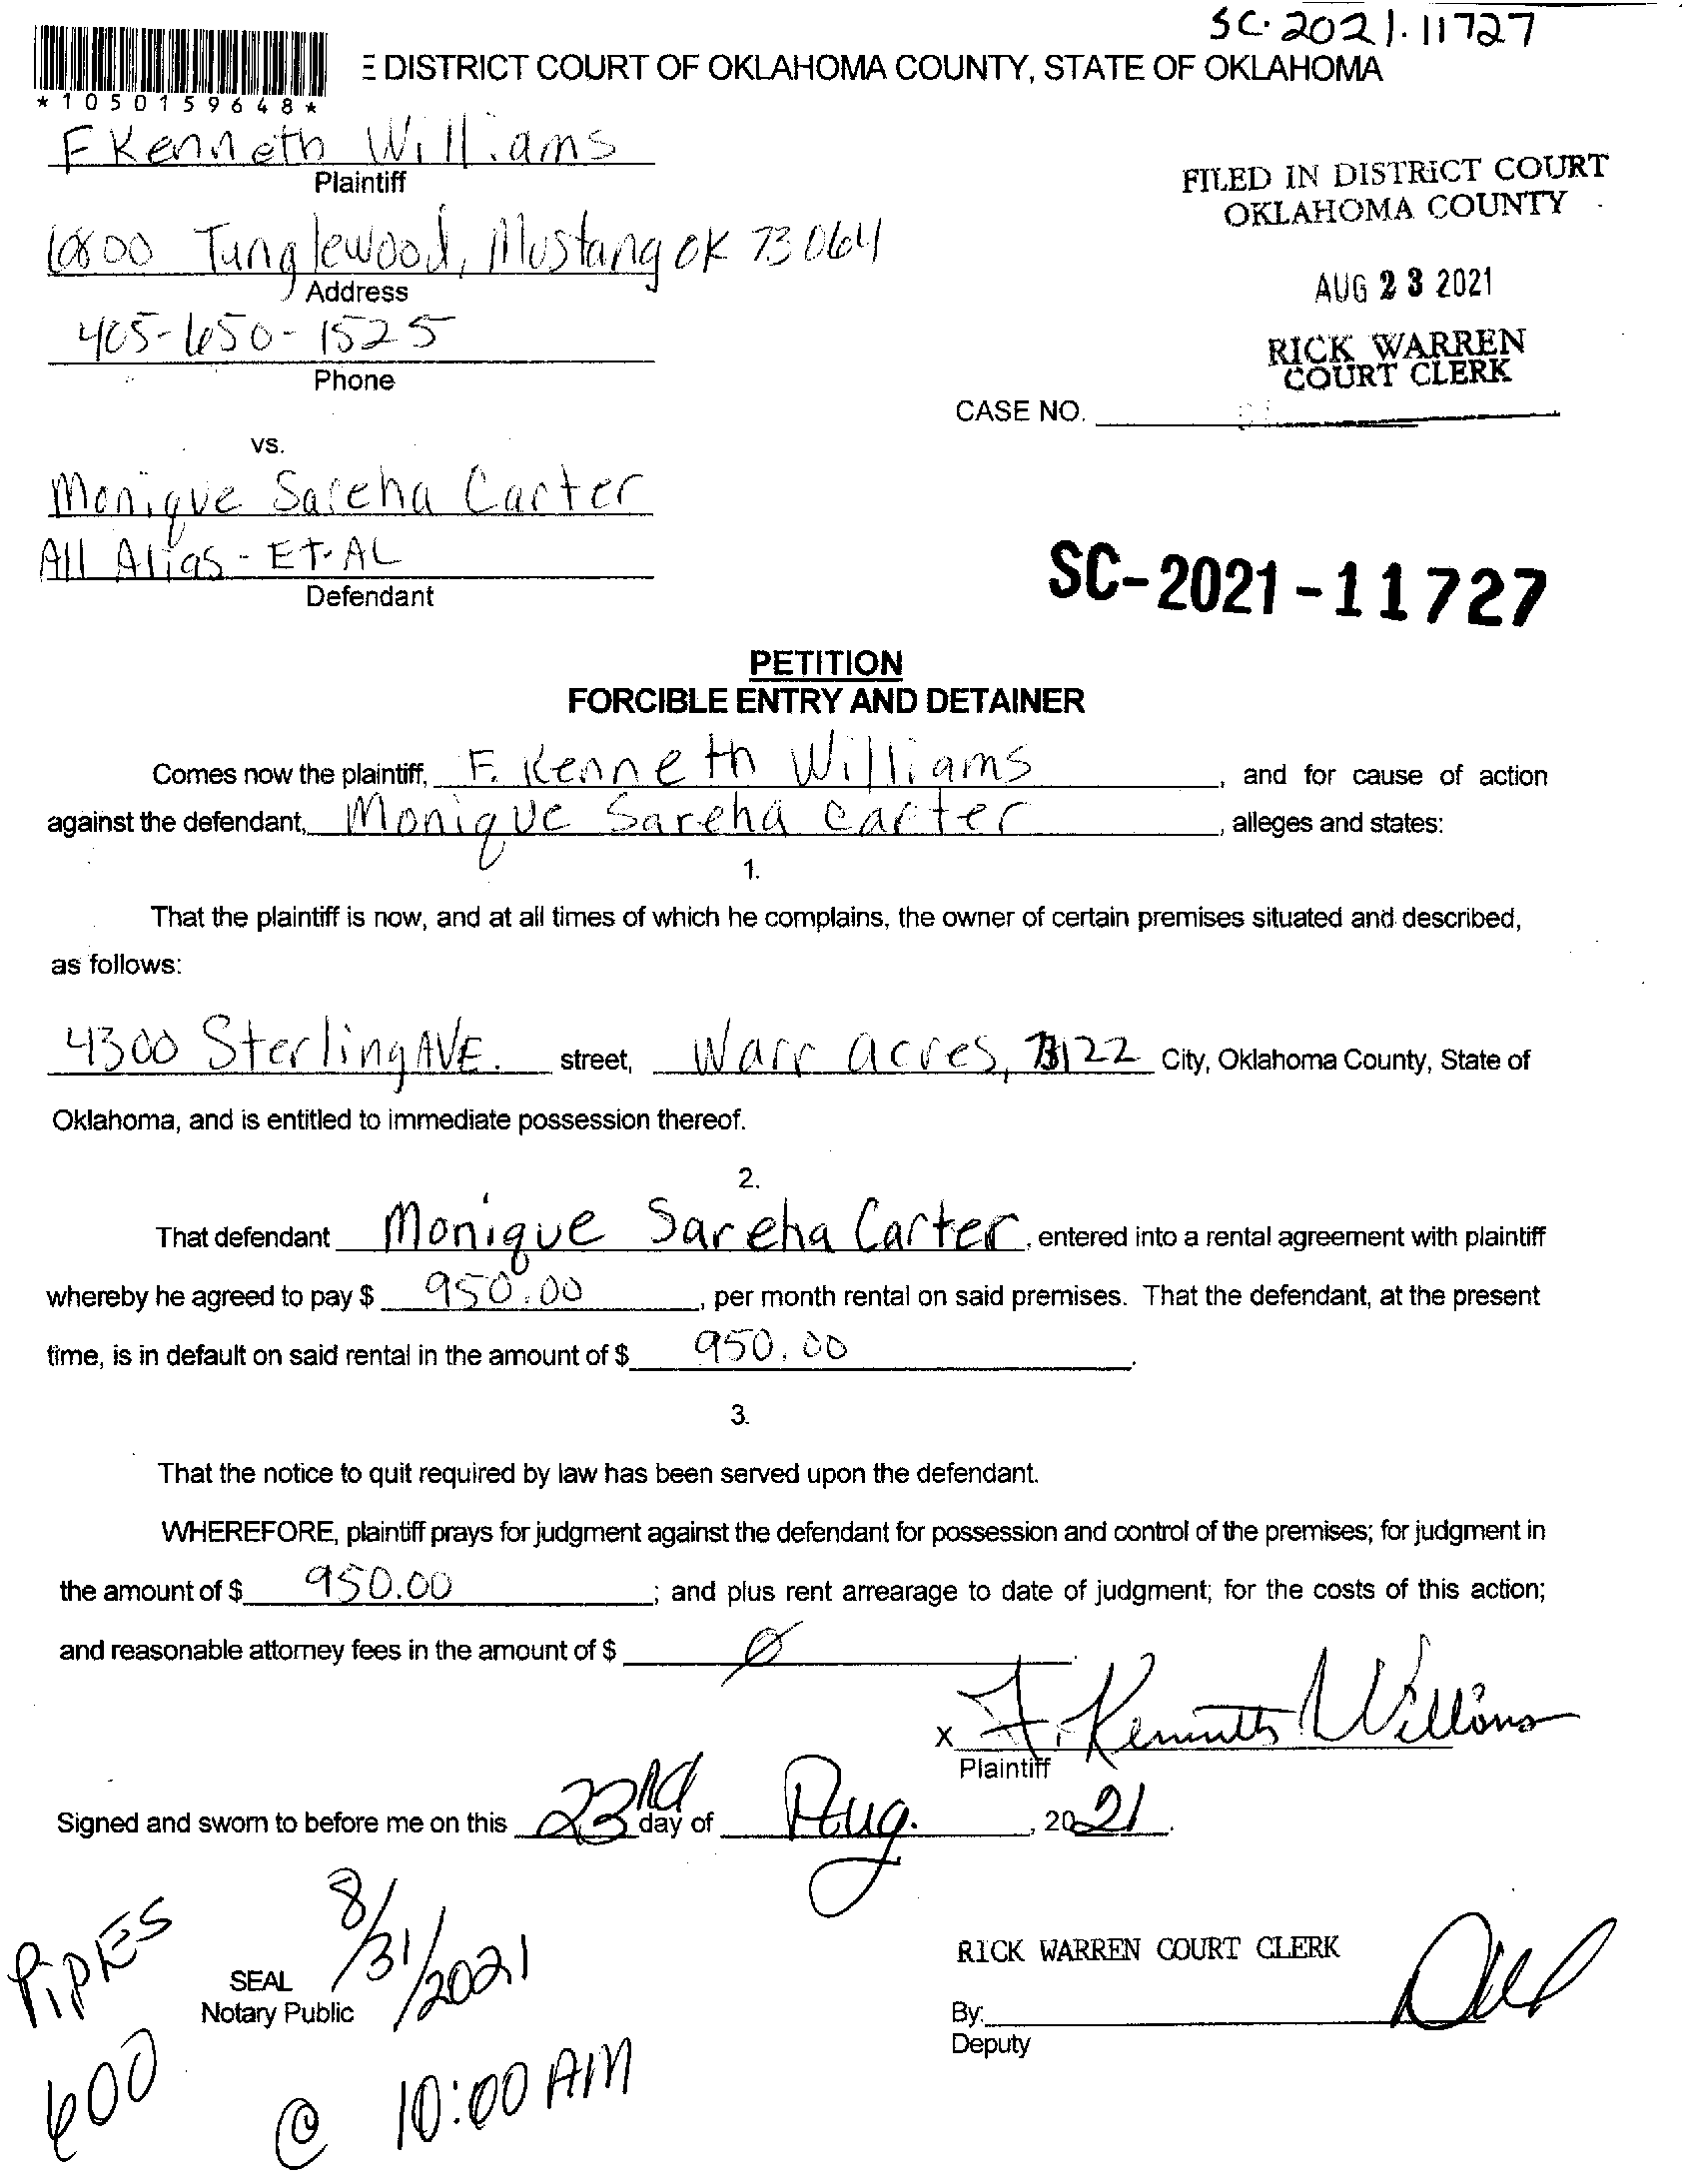 SC-2021-11727
E DISTRICT COURT OF OKLAHOMA COUNTY, STATE OF OKLAHOMA
*1050159648*
F Kenneth Williams
Plaintiff
FILED IN DISTRICT COURT
OKLAHOMA COUNTY
6800 Tanglewood, Mustang OK 73064
Address
AUG 23 2021
405-650-1525
Phone
RICK WARREN
COURT CLERK
CASE NO.
vs.
Monique Sareha Carter
All Alias - ET. AL
Defendant
SC-2021-11727
PETITION
FORCIBLE ENTRY AND DETAINER
Comes now the plaintiff, F. Kenneth Williams, and for cause of action
against the defendant, Monique Sareha Carter, alleges and states:
1.
That the plaintiff is now, and at all times of which he complains, the owner of certain premises situated and described,
as follows:
4300 Sterling AVE. street, Warr acres, 73122 City, Oklahoma County, State of
Oklahoma, and is entitled to immediate possession thereof.
2.
That defendant Monique Sareha Carter, entered into a rental agreement with plaintiff
whereby he agreed to pay $ 950.00, per month rental on said premises. That the defendant, at the present
time, is in default on said rental in the amount of $ 950.00.
3.
That the notice to quit required by law has been served upon the defendant.
WHEREFORE, plaintiff prays for judgment against the defendant for possession and control of the premises; for judgment in
the amount of $ 950.00; and plus rent arrearage to date of judgment; for the costs of this action;
and reasonable attorney fees in the amount of $ Ø.
X F. Kenneth Williams
Plaintiff
Signed and sworn to before me on this 23rd day of Aug., 2021.
PIPKES
8/31/2021
SEAL
Notary Public
RICK WARREN COURT CLERK
By:
Deputy
600
@ 10:00 AM